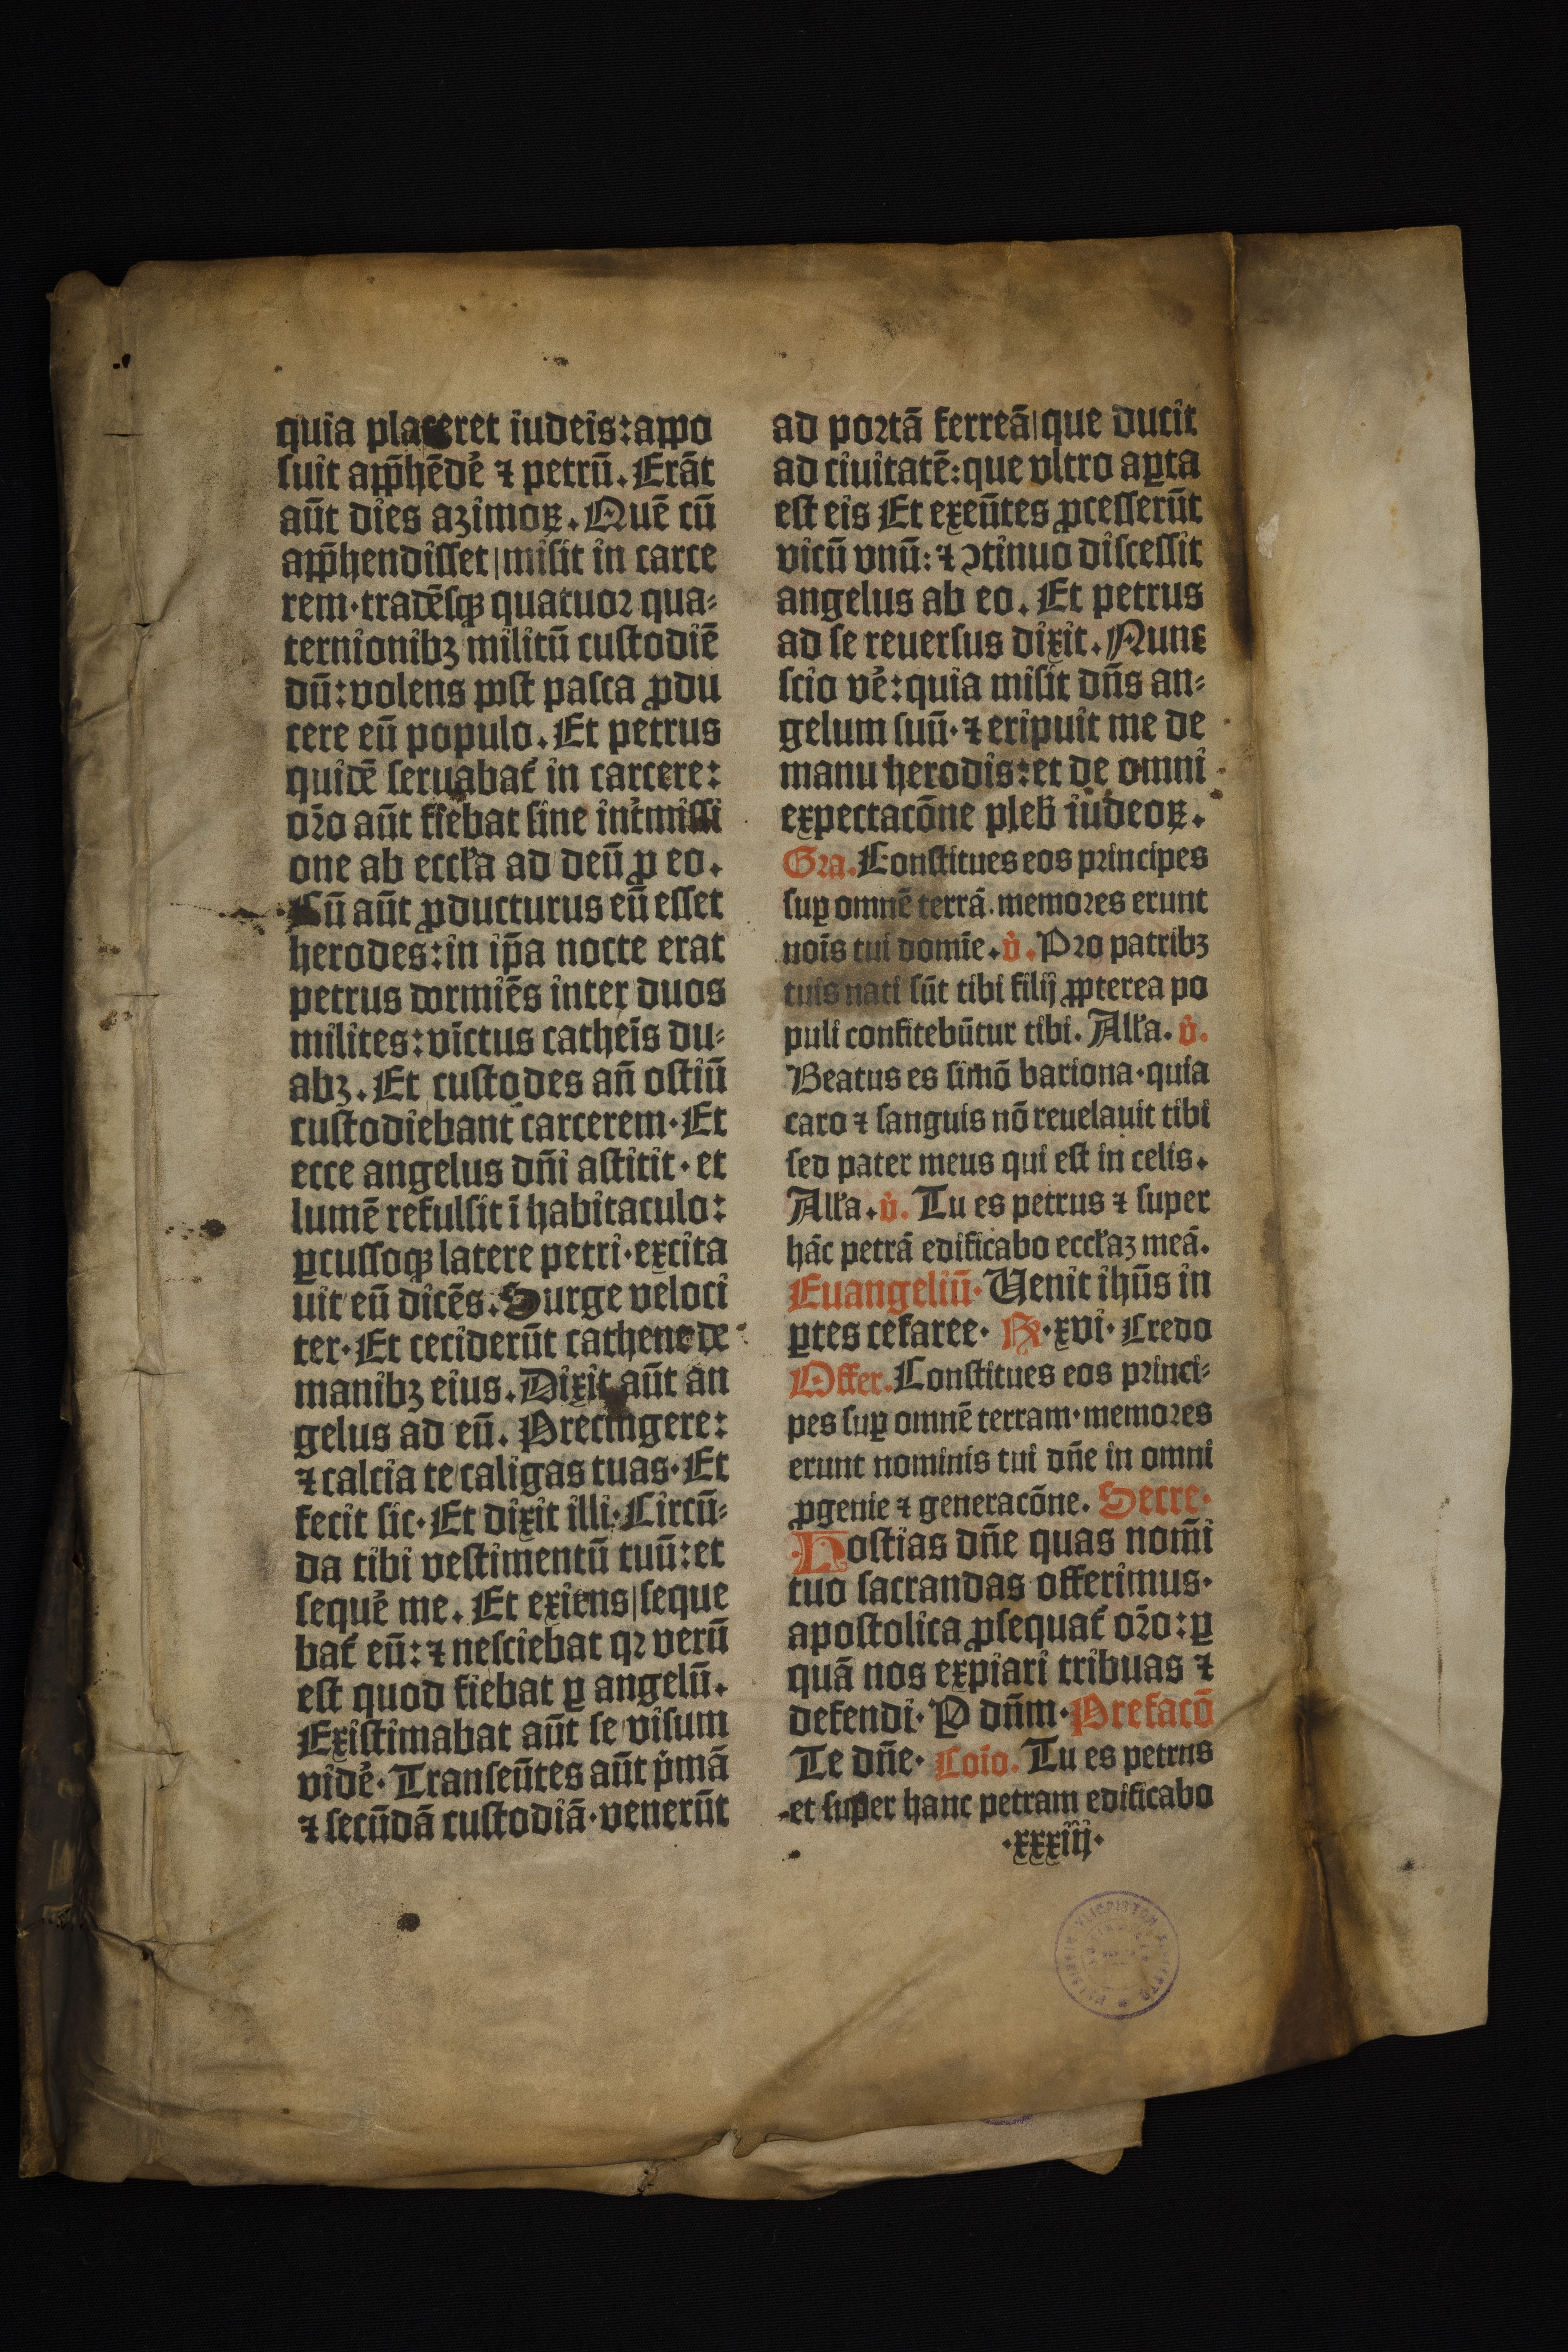 quia placeret iudeis: appo
suit app̄hēdē ⁊ petrū. Erāt
aūt dies azimoꝝ. Quē cū
app̄hendisset | misit in carce
rem· tradēsqꝫ quatuor qua⸗
ternionibꝫ militū custodiē
dū: volens post pasca ꝓdu
cere eū populo. Et petrus
quidē seruabat᷑ in carcere:
or̄o aūt fiebat sine int̄missi
one ab eccl̄a ad deū ꝓ eo.
Cū aūt ꝓducturus eū esset
herodes: in ip̄a nocte erat
petrus dormiēs inter duos
milites: vinctus cathēis du⸗
abꝫ. Et custodes an̄ ostiū
custodiebant carcerem· Et
ecce angelus dn̄i astitit· et
lumē refulsit ī habitaculo:
ꝑcussoqꝫ latere petri· excita
uit eū dicēs. Surge veloci
ter· Et ceciderūt cathene de
manibꝫ eius. Dixit aūt an
gelus ad eū. Precingere:
⁊ calcia te caligas tuas· Et
fecit sic· Et dixit illi· Circū⸗
da tibi vestimentū tuū: et
sequē me. Et exiens | seque
bat᷑ eū: ⁊ nesciebat qꝛ verū
est quod fiebat ꝑ angelū.
Existimabat aūt se visum
vidē· Transeūtes aūt p̄mā
⁊ secūdā custodiā· venerūt
ad portā ferreā | que ducit
ad ciuitatē: que vltro aꝑta
est eis Et exeūtes ꝓcesserūt
vicū vnū: ⁊ ꝯtinuo discessit
angelus ab eo. Et petrus
ad se reuersus dixit. Nunc
scio vē: quia misit dn̄s an⸗
gelum suū· ⁊ eripuit me de
manu herodis: et de omni
expectacōne pleb̄ iudeoꝝ.
Gra. Constitues eos principes
suꝑ omnē terrā. memores erunt
nōis tui domīe. v̄. Pro patribꝫ
tuis nati sūt tibi filij ꝓpterea po
puli confitebūtur tibi. All̄a. v̄.
Beatus es simō bariona· quia
caro ⁊ sanguis nō reuelauit tibi
sed pater meus qui est in celis.
All̄a. v̄. Tu es petrus ⁊ super
hāc petrā edificabo eccl̄aꝫ meā.
Euangeliū· Venit ihūs in
ꝑtes cesaree· R̄· xvi· Credo
Offer. Constitues eos princi⸗
pes suꝑ omnē terram· memores
erunt nominis tui dn̄e in omni
ꝓgenie ⁊ generacōne. Secre·
Hostias dn̄e quas nom̄i
tuo sacrandas offerimus·
apostolica ꝓsequat᷑ or̄o: ꝑ
quā nos expiari tribuas ⁊
defendi· P dn̄m· Prefacō
Te dn̄e· Cōio. Tu es petrus
et super hanc petram edificabo
·xxxiij·